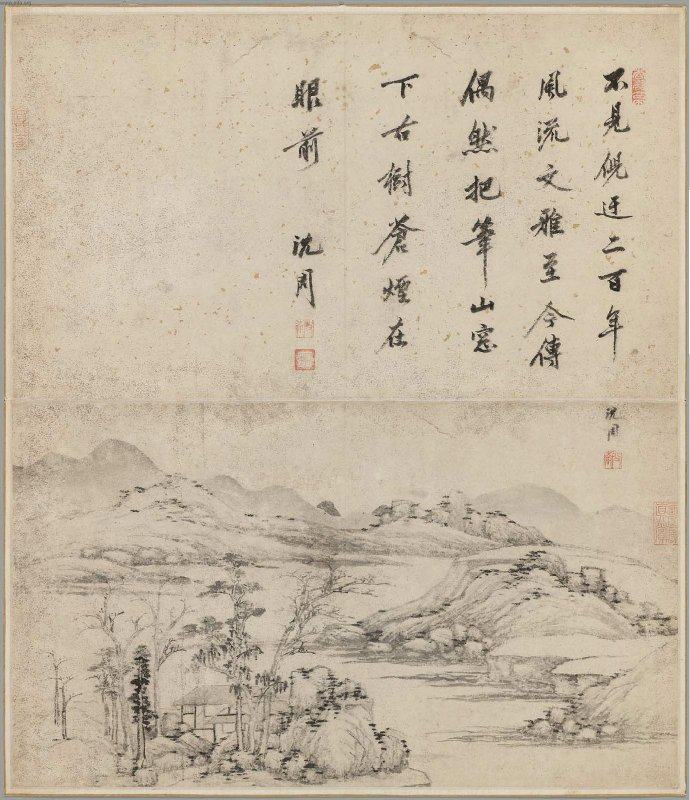 不見倪迂二百年
風流文雅至今傳
偶然把筆山窓
下古樹蒼煙在
眼前
沈周
沈周